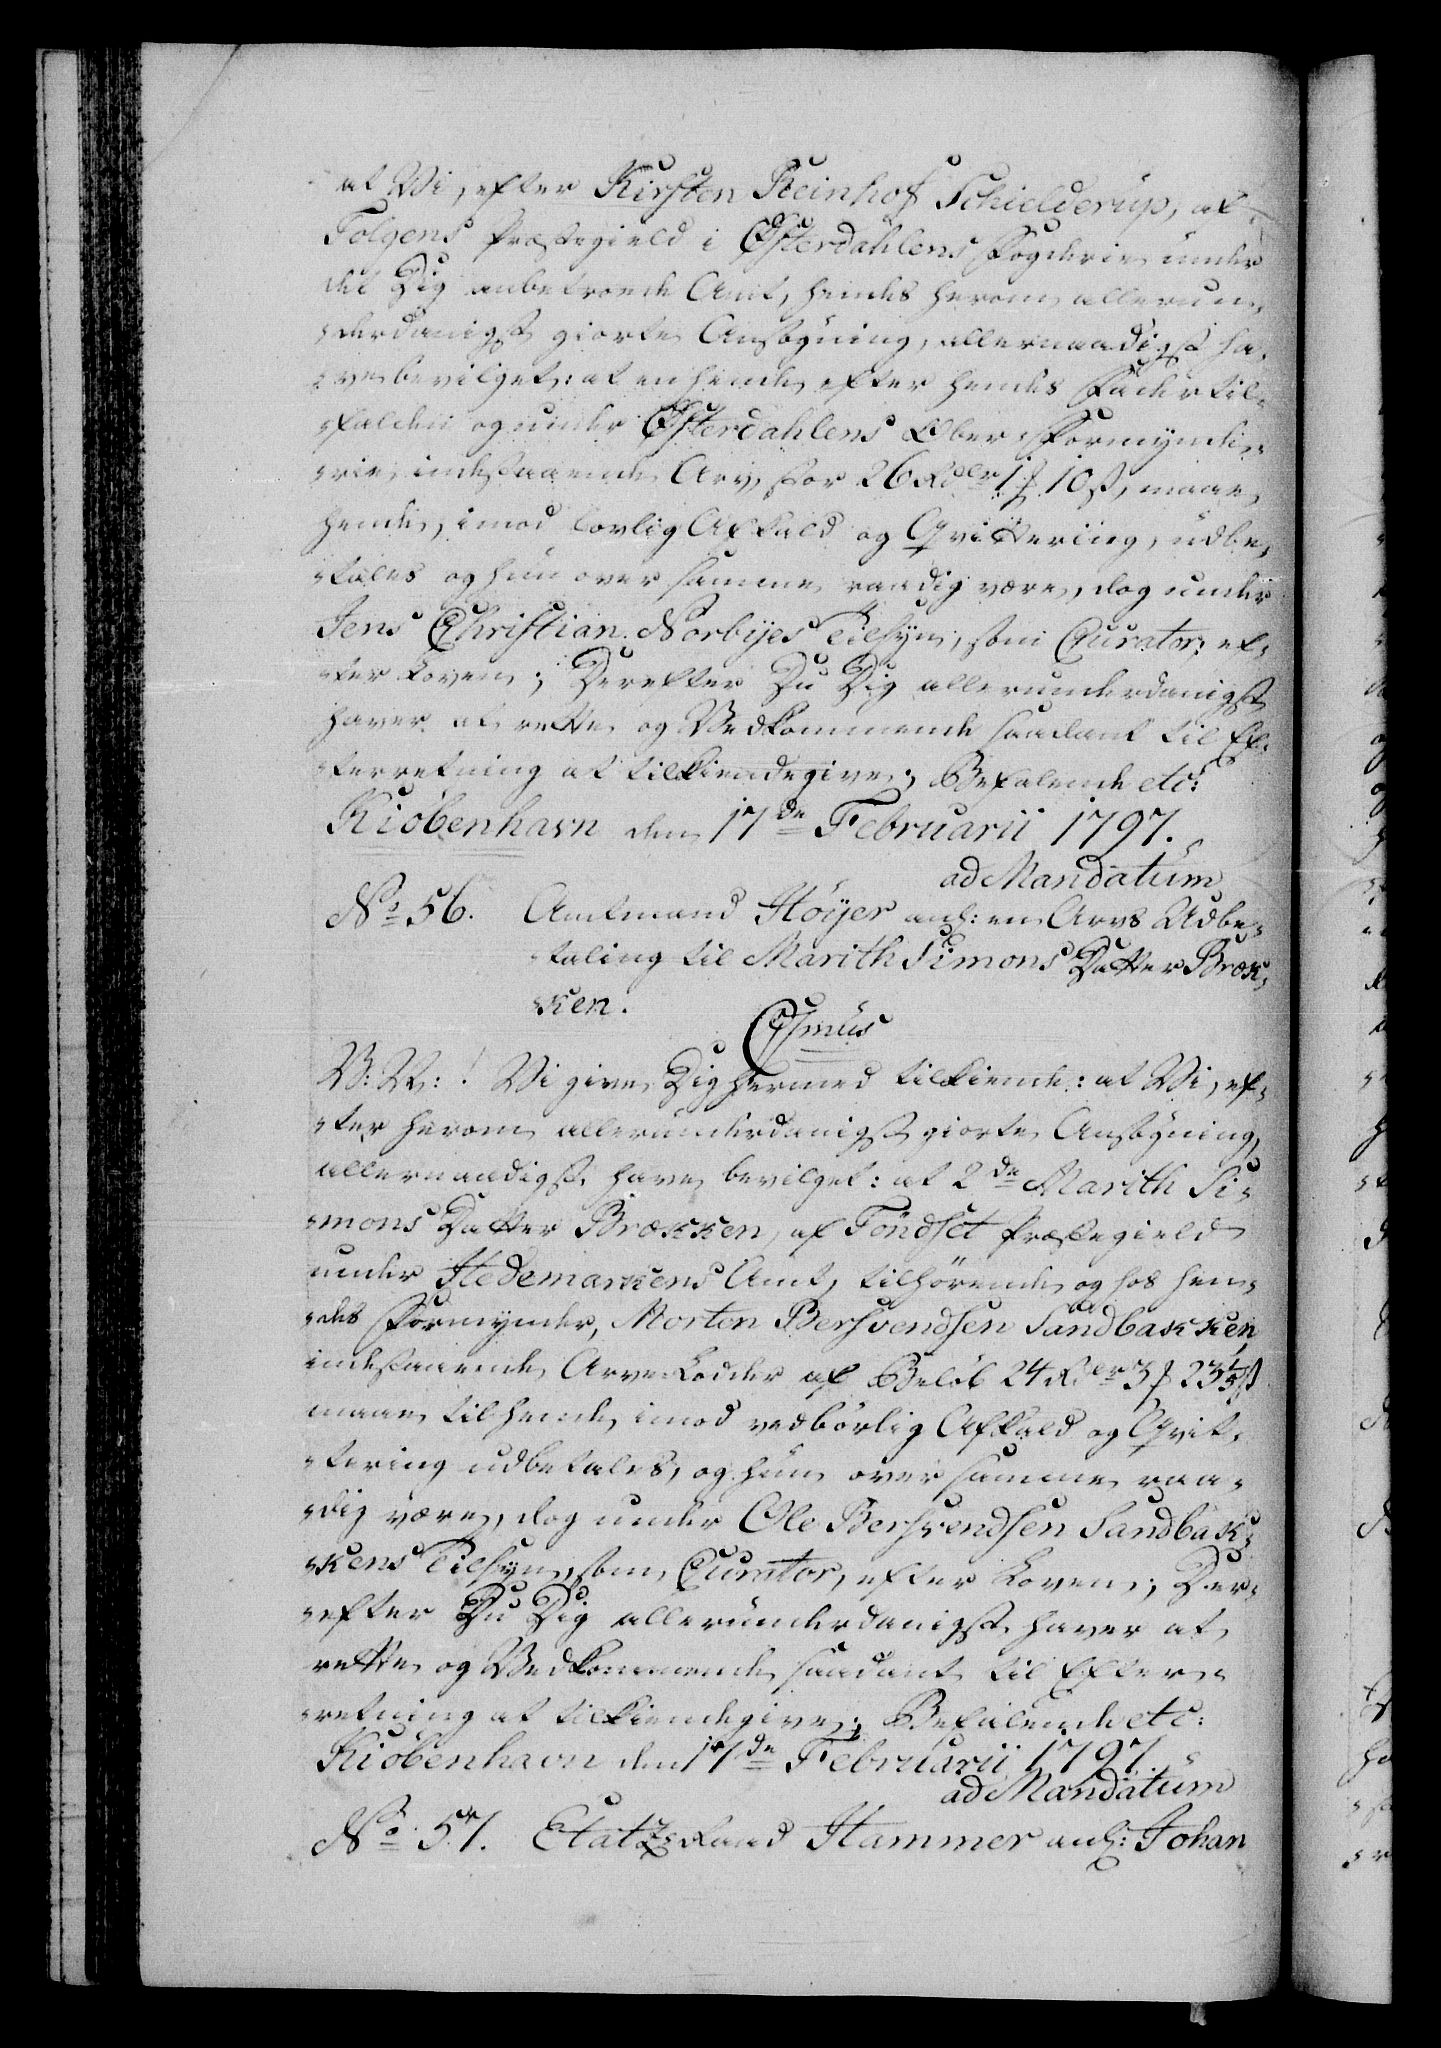 at Vi, efter Kirsten Reinhof Schielderup, af
Tolgens Præstegield i Østerdahlens Fogderie under
det Dig anbetroede Amt, hendes herom allerun-
-derdanigst giorte Ansøgning, allernaadigst ha-
-ve bevilget: at en hende efter hendes Fader til-
-falden og under Østerdahlens Ober-Formynde-
-rie indestaaende Arv, stor 26 Rdlr 1 ƒ 10 ß, maae
hende, imod lovlig Afkald og Qvittering, udbe-
-tales og hun over samme raadig være, dog under
Jens Christian Norbyes Tilsyn, som Curator, ef-
-ter Loven; Derefter Du Dig allerunderdanigst
haver at rette og Vedkommende saadant til Ef-
-terretning at tilkiendegive; Befalende etc:
Kiøbenhavn den 17de Februarii 1797.
ad Mandatum
No 56. Amtmand Høyer anl: en Arvs Udbe-
-taling til Marith Simons Datter Bræk-
-ken.
Csmus
V: V: ! Vi give Dig hermed tilkiende: at Vi, ef-
-ter herom allerunderdanigst giorte Ansøgning,
allernaadigst have bevilget: at 2de Marith Si-
-mons Datter Brækken, af Töndset Præstegield
under Hedemarkens Amt, tilhørende og hos hen-
-des Formynder, Morten Bersvendsen Sandbakken,
indestaaende Arve-Lodder af Beløb 24 Rdlr 3 ƒ 23 1/5 ß
maae til hende imod vedbørlig Afkald og Qvit-
-tering udbetales, og hun over samme raa-
-dig være, dog under Ole Bersvendsen Sandbak-
-kens Tilsyn, som Curator, efter Loven; Der-
-efter Du Dig allerunderdanigst haver at
rette og Vedkommende saadant til Efter-
-retning at tilkiendegive; Befalende etc:
Kiøbenhavn den 17de Februarii 1797.
ad Mandatum
No 57. Etatz-Raad Hammer anl: Johan